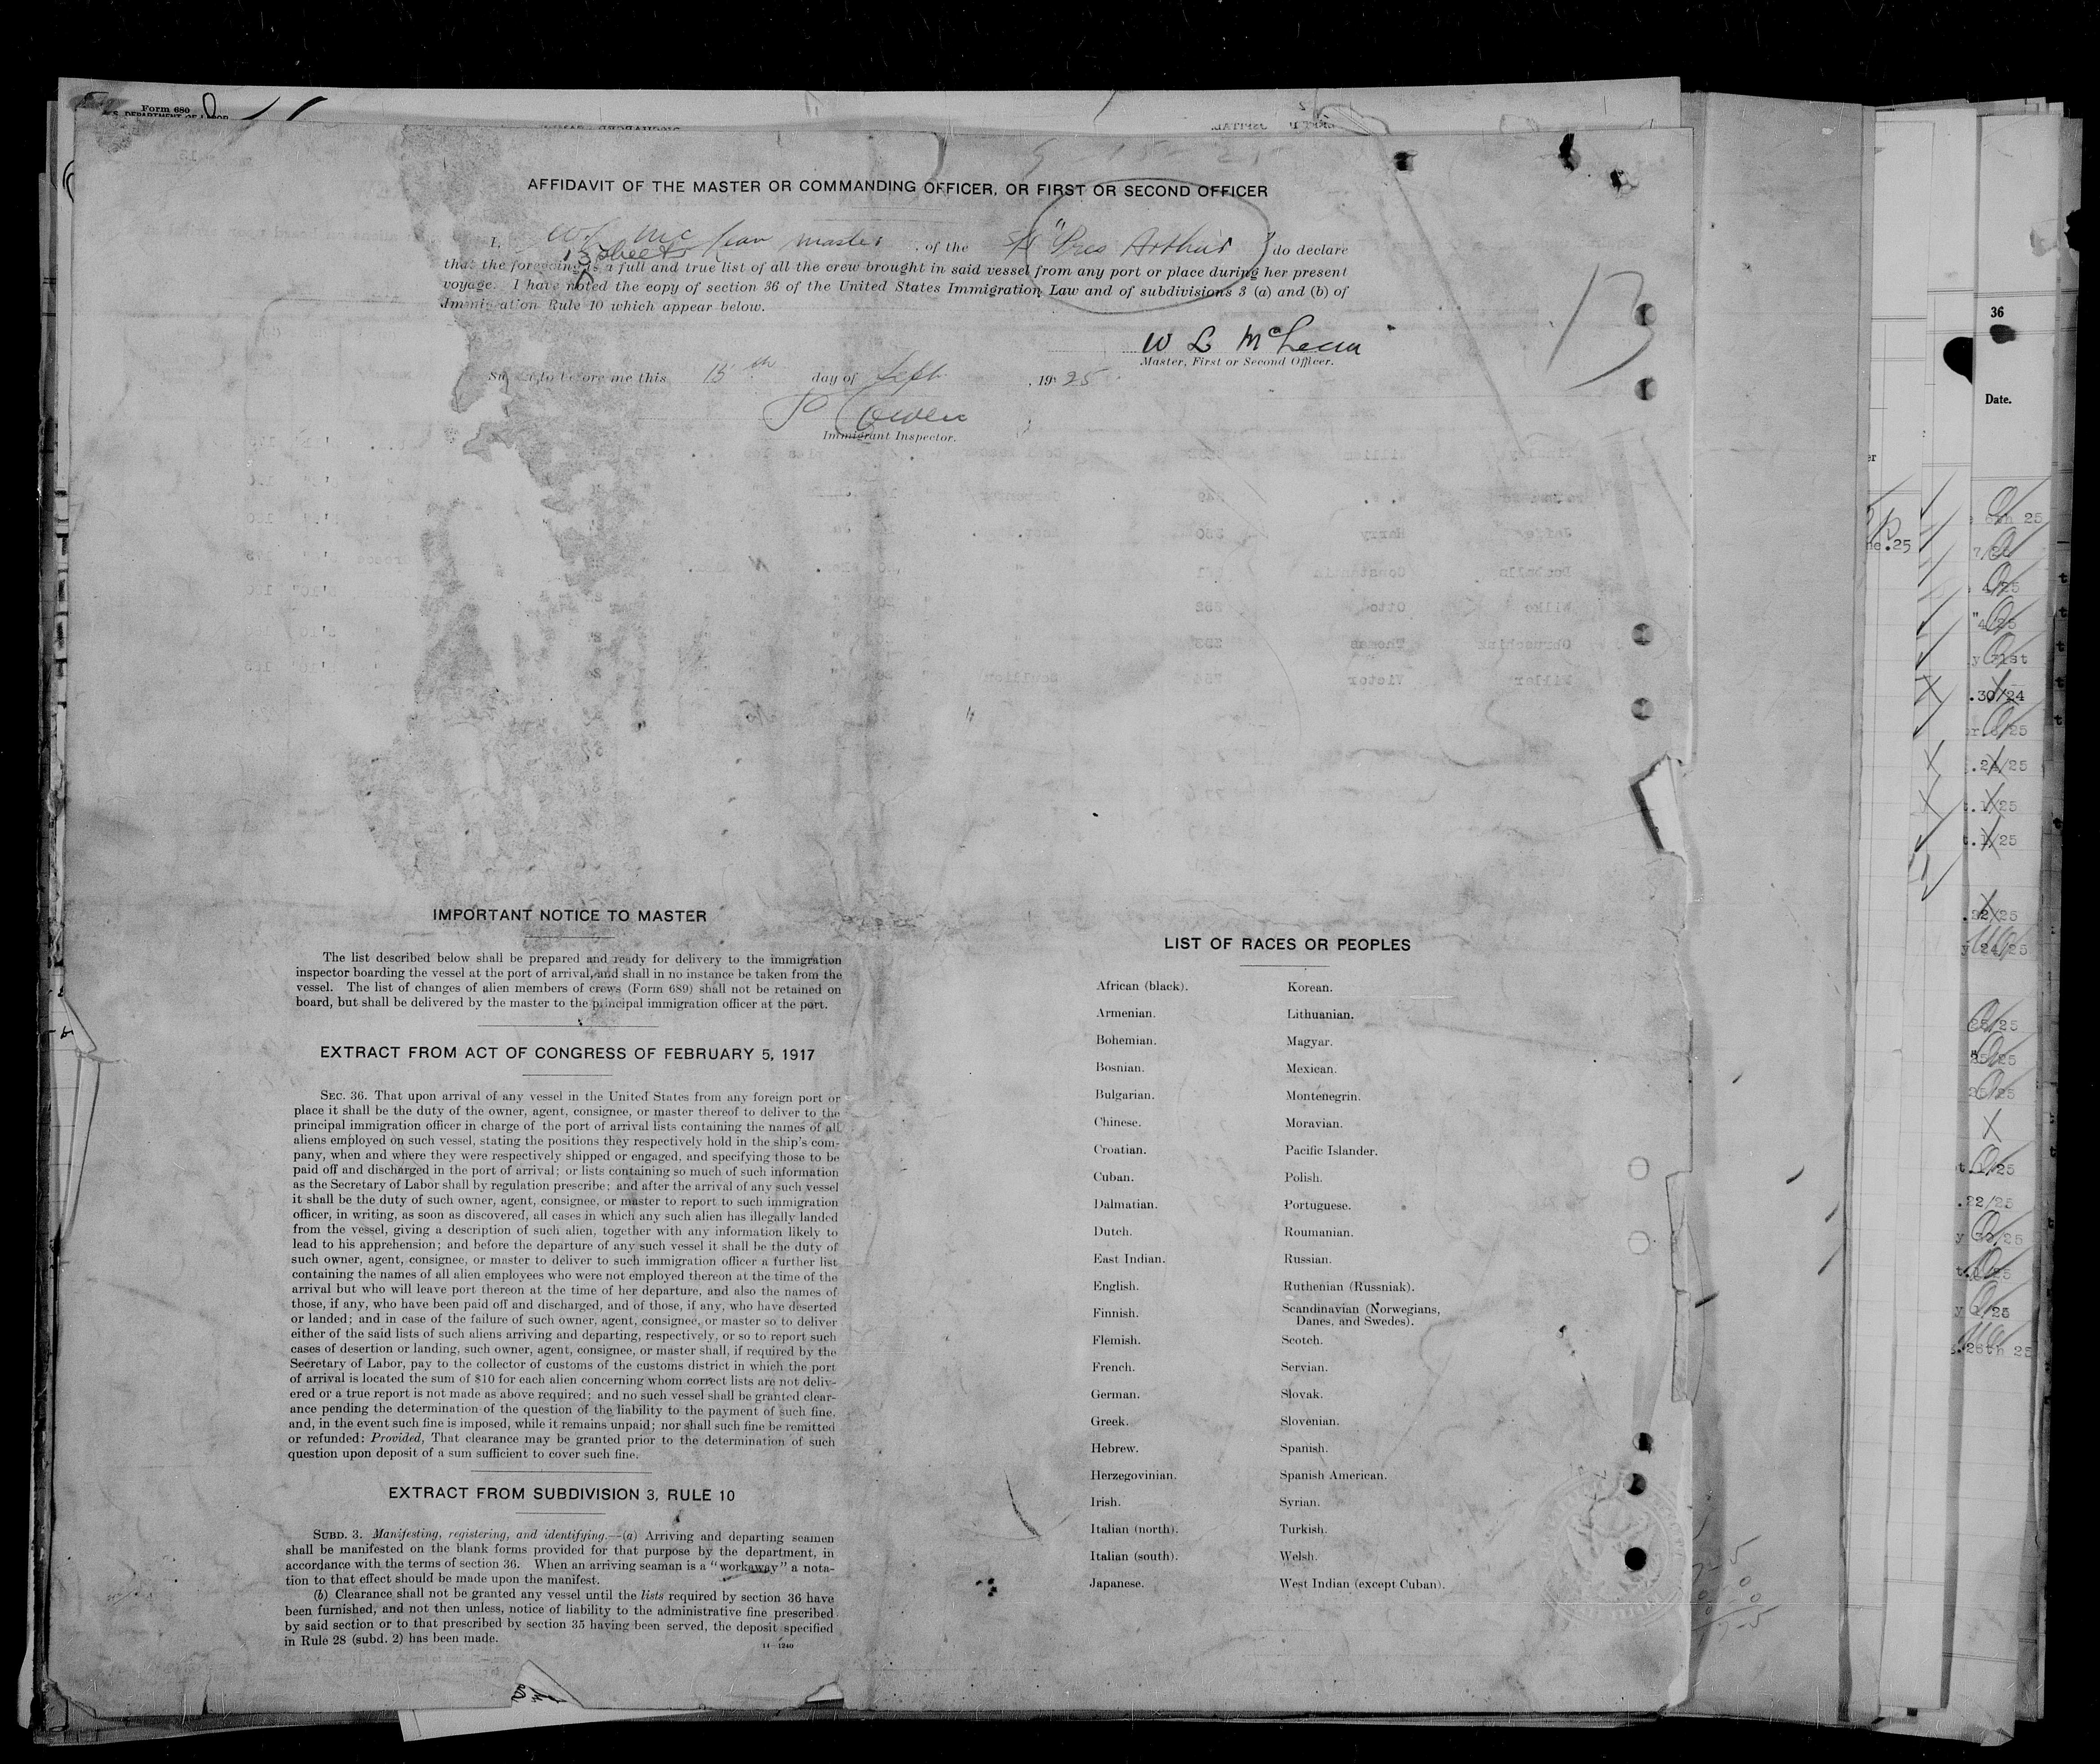 Form 680
U.S. DEPARTMENT OF LABOR
AFFIDAVIT OF THE MASTER OR COMMANDING OFFICER, OR FIRST OR SECOND OFFICER
I, W L McLean master, of the SS "Pres Arthur" do declare
13 sheets
that the foregoing is a full and true list of all the crew brought in said vessel from any port or place during her present
voyage. I have noted the copy of section 36 of the United States Immigration Law and of subdivisions 3 (a) and (b) of
Immigration Rule 10 which appear below.
13
W L McLean
Master, First or Second Officer.
Sworn to before me this 15th day of Sept., 1925
Immigrant Inspector.
IMPORTANT NOTICE TO MASTER
The list described below shall be prepared and ready for delivery to the immigration
inspector boarding the vessel at the port of arrival, and shall in no instance be taken from the
vessel. The list of changes of alien members of crews (Form 689) shall not be retained on
board, but shall be delivered by the master to the principal immigration officer at the port.
EXTRACT FROM ACT OF CONGRESS OF FEBRUARY 5, 1917
SEC. 36. That upon arrival of any vessel in the United States from any foreign port or
place it shall be the duty of the owner, agent, consignee, or master thereof to deliver to the
principal immigration officer in charge of the port of arrival lists containing the names of all
aliens employed on such vessel, stating the positions they respectively hold in the ship's com-
pany, when and where they were respectively shipped or engaged, and specifying those to be
paid off and discharged in the port of arrival; or lists containing so much of such information
as the Secretary of Labor shall by regulation prescribe; and after the arrival of any such vessel
it shall be the duty of such owner, agent, consignee, or master to report to such immigration
officer, in writing, as soon as discovered, all cases in which any such alien has illegally landed
from the vessel, giving a description of such alien, together with any information likely to
lead to his apprehension; and before the departure of any such vessel it shall be the duty of
such owner, agent, consignee, or master to deliver to such immigration officer a further list
containing the names of all alien employees who were not employed thereon at the time of the
arrival but who will leave port thereon at the time of her departure, and also the names of
those, if any, who have been paid off and discharged, and of those, if any, who have deserted
or landed; and in case of the failure of such owner, agent, consignee, or master so to deliver
either of the said lists of such aliens arriving and departing, respectively, or so to report such
cases of desertion or landing, such owner, agent, consignee, or master shall, if required by the
Secretary of Labor, pay to the collector of customs of the customs district in which the port
of arrival is located the sum of $10 for each alien concerning whom correct lists are not deliv-
ered or a true report is not made as above required; and no such vessel shall be granted clear-
ance pending the determination of the question of the liability to the payment of such fine,
and, in the event such fine is imposed, while it remains unpaid; nor shall such fine be remitted
or refunded: Provided, That clearance may be granted prior to the determination of such
question upon deposit of a sum sufficient to cover such fine.
EXTRACT FROM SUBDIVISION 3, RULE 10
SUBD. 3. Manifesting, registering, and identifying.—(a) Arriving and departing seamen
shall be manifested on the blank forms provided for that purpose by the department, in
accordance with the terms of section 36. When an arriving seaman is a "workaway" a nota-
tion to that effect should be made upon the manifest.
(b) Clearance shall not be granted any vessel until the lists required by section 36 have
been furnished, and not then unless, notice of liability to the administrative fine prescribed
by said section or to that prescribed by section 35 having been served, the deposit specified
in Rule 28 (subd. 2) has been made.
14—1240
LIST OF RACES OR PEOPLES
African (black).
Armenian.
Bohemian.
Bosnian.
Bulgarian.
Chinese.
Croatian.
Cuban.
Dalmatian.
Dutch.
East Indian.
English.
Finnish.
Flemish.
French.
German.
Greek.
Hebrew.
Herzegovinian.
Irish.
Italian (north).
Italian (south).
Japanese.
Korean.
Lithuanian.
Magyar.
Mexican.
Montenegrin.
Moravian.
Pacific Islander.
Polish.
Portuguese.
Roumanian.
Russian.
Ruthenian (Russniak).
Scandinavian (Norwegians,
Danes, and Swedes).
Scotch.
Servian.
Slovak.
Slovenian.
Spanish.
Spanish American.
Syrian.
Turkish.
Welsh.
West Indian (except Cuban).
36
Date.